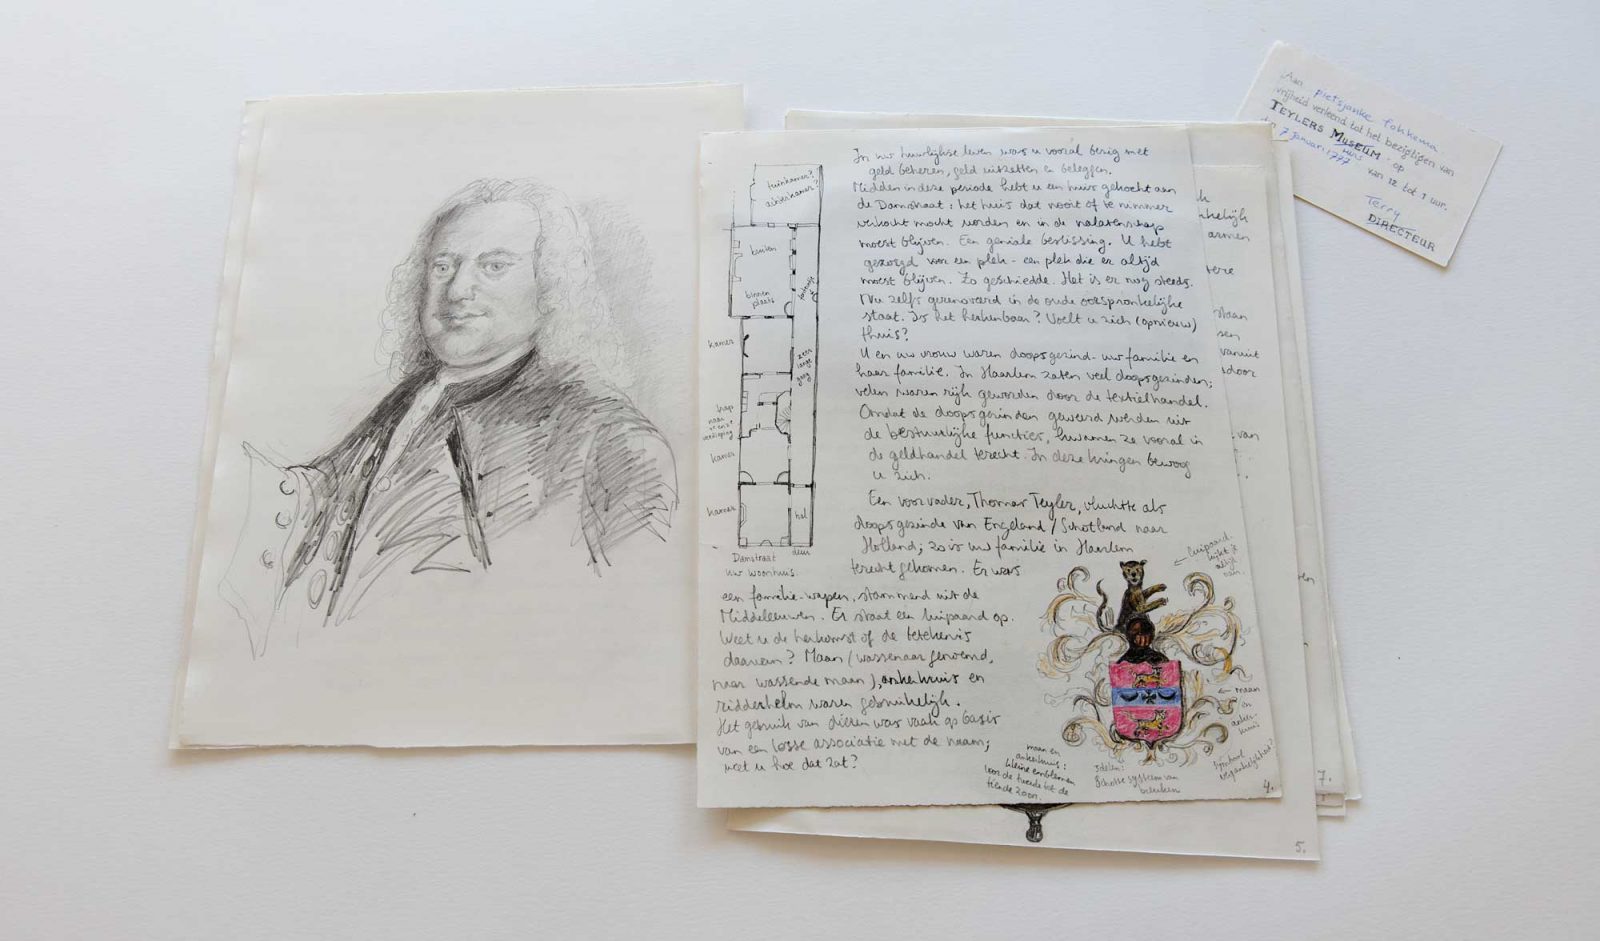 tuinkamer?
achterkamer?
buiten
binnen
plaats
kamer
zeer
lange
gang
trap
naar
verdieping
kamer
kamer
hal
Damstraat
deur
uw woonhuis.
In uw huwelijkse leven was u vooral bezig met
geld beheren, geld uitzetten en beleggen.
Midden in deze periode hebt u een huis gekocht aan
de Damstraat: het huis dat nooit of te nimmer
verkocht mocht worden en in de nalatenschap
moest blijven. Een geniale beslissing. U hebt
gezorgd voor een plek - een plek die er altijd
moest blijven. Zo geschiedde. Het is er nog steeds.
Nu zelfs gerenoveerd in de oude oorspronkelijke
staat. Is het herkenbaar? Voelt u zich (opnieuw)
thuis?
U en uw vrouw waren doopsgezind - uw familie en
haar familie. In Haarlem zaten veel doopsgezinden;
velen waren rijk geworden door de textielhandel.
Omdat de doopsgezinden geweerd werden uit
de bestuurlijke functies, kwamen ze vooral in
de geldhandel terecht. In deze kringen bewoog
u zich.
Een voorvader, Thomas Teyler, vluchtte als
doopsgezinde van Engeland / Schotland naar
Holland; zo is uw familie in Haarlem
terecht gekomen. Er was
een familie-wapen, stammend uit de
Middeleeuwen. Er staat een luipaard op.
Weet u de herkomst of de betekenis
daarvan? Maan (wassenaar genoemd,
naar wassende maan), ankerkruis en
ridderhelm waren gebruikelijk.
Het gebruik van dieren was vaak op basis
van een losse associatie met de naam;
weet u hoe dat zat?
luipaard.
kijkt je
altijd
aan.
← maan
en
anker-
kruis
maan en
ankerkruis:
kleine emblemen
voor de tweede tot de
tiende zoon.
Schotse systeem van
4.
5.
7.
armen
van
Aan pietsjanke fokkema.
vrijheid verleend tot het bezigtigen van
TEYLERS MUSEUM op
huis
den 7 januari 1777 van 12 tot 1 uur.
Terry
DIRECTEUR